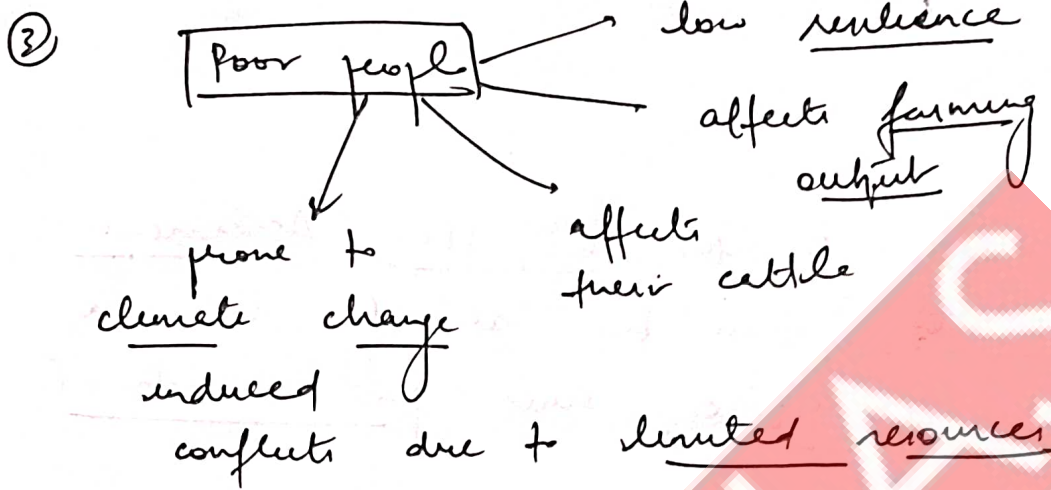 ③
Poor people
low resilience
affects farming
output
affects
their cattle
prone to
climate change
induced
conflicts due to limited resources